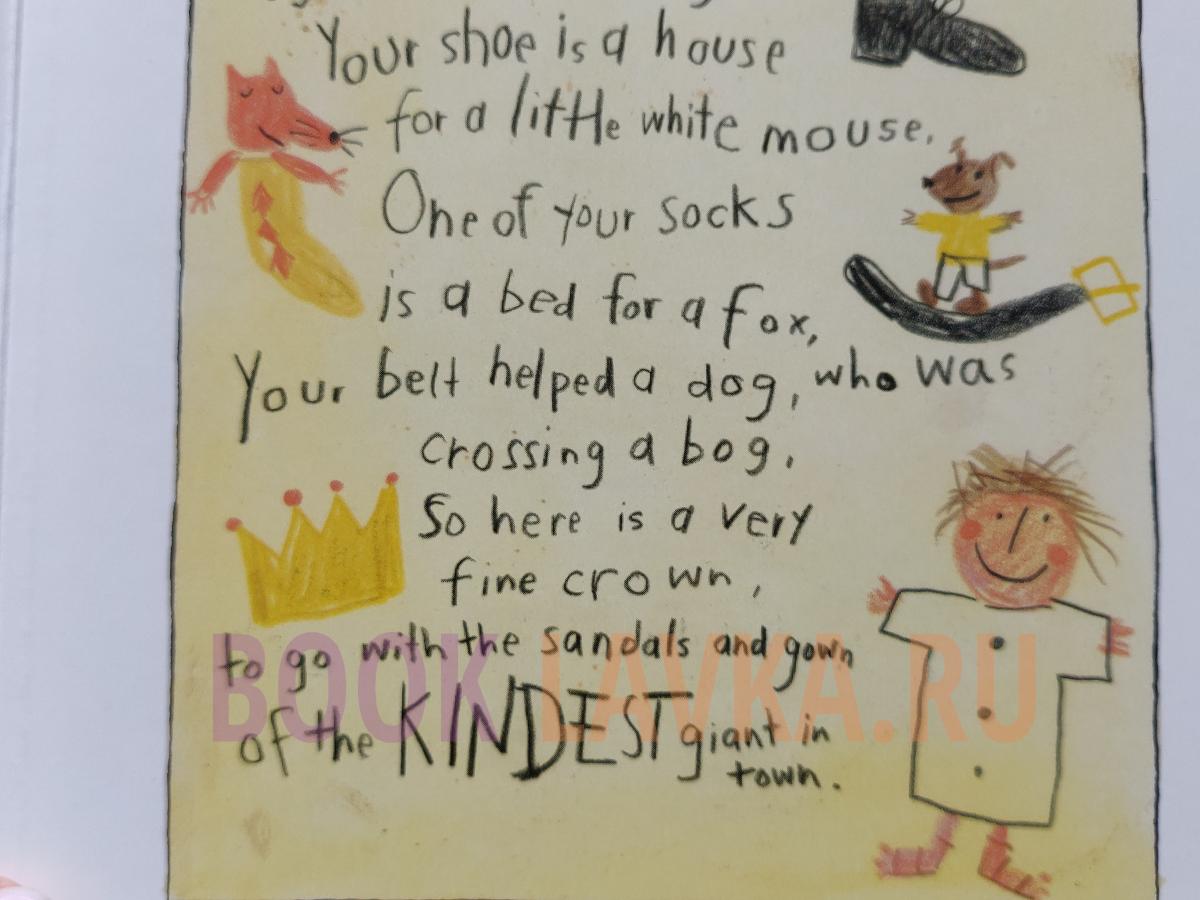 Your shoe is a house
for a little white mouse.
One of your socks
is a bed for a fox,
Your belt helped a dog, who was
crossing a bog.
So here is a very
fine crown,
to go with the sandals and gown
of the KINDEST giant in
town.
BOOK LAVKA.RU